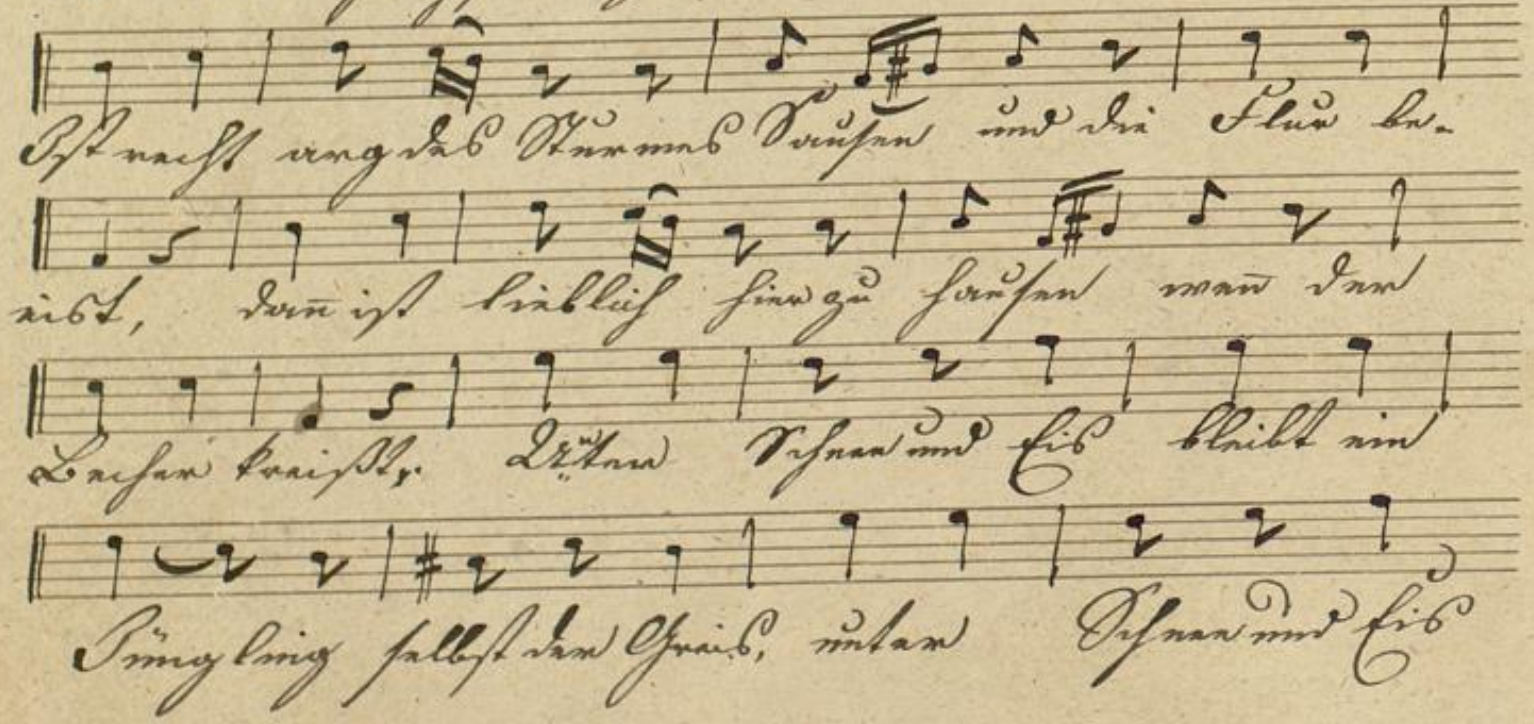 Ist recht arg des Sturmes Sausen und die Flur be-
eist, dan̅ ist lieblich hier zu hausen wen̅ der
Becher kreißt,. Unter Schnee und Eis bleibt ein
Jüngling selbst der Greis, unter Schnee und Eis